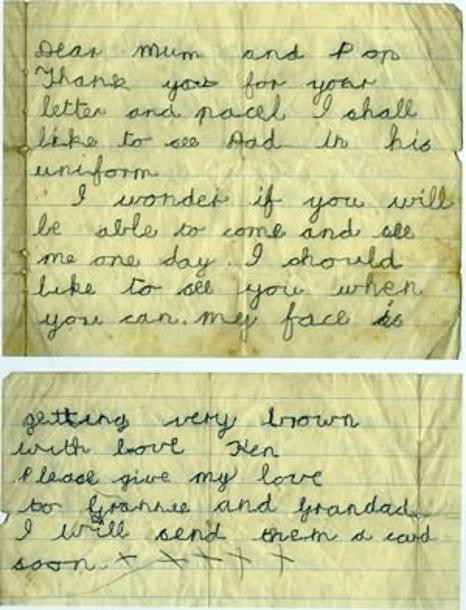 Dear Mum and Pop
Thank you for your
letter and pacel I shall
like to see Dad in his
uniform
I wonder if you will
be able to come and see
me one day. I should
like to see you when
you can. my face is
getting very brown
with love Ken
Please give my love
to Grannie and Grandad
I will send them a card
soon. x x x x x